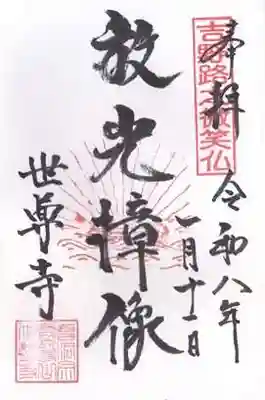 奉拝
吉野路之微笑仏
令和八年
一月十一日
放光樟像
世尊寺